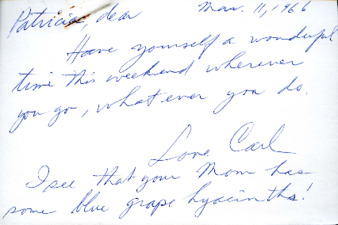 Patricia, dear Mar. 11, 1966
Have yourself a wonderful
time this weekend wherever
you go, what ever you do.
Love Carl
I see that your Mom has
some blue grape hyacinths!